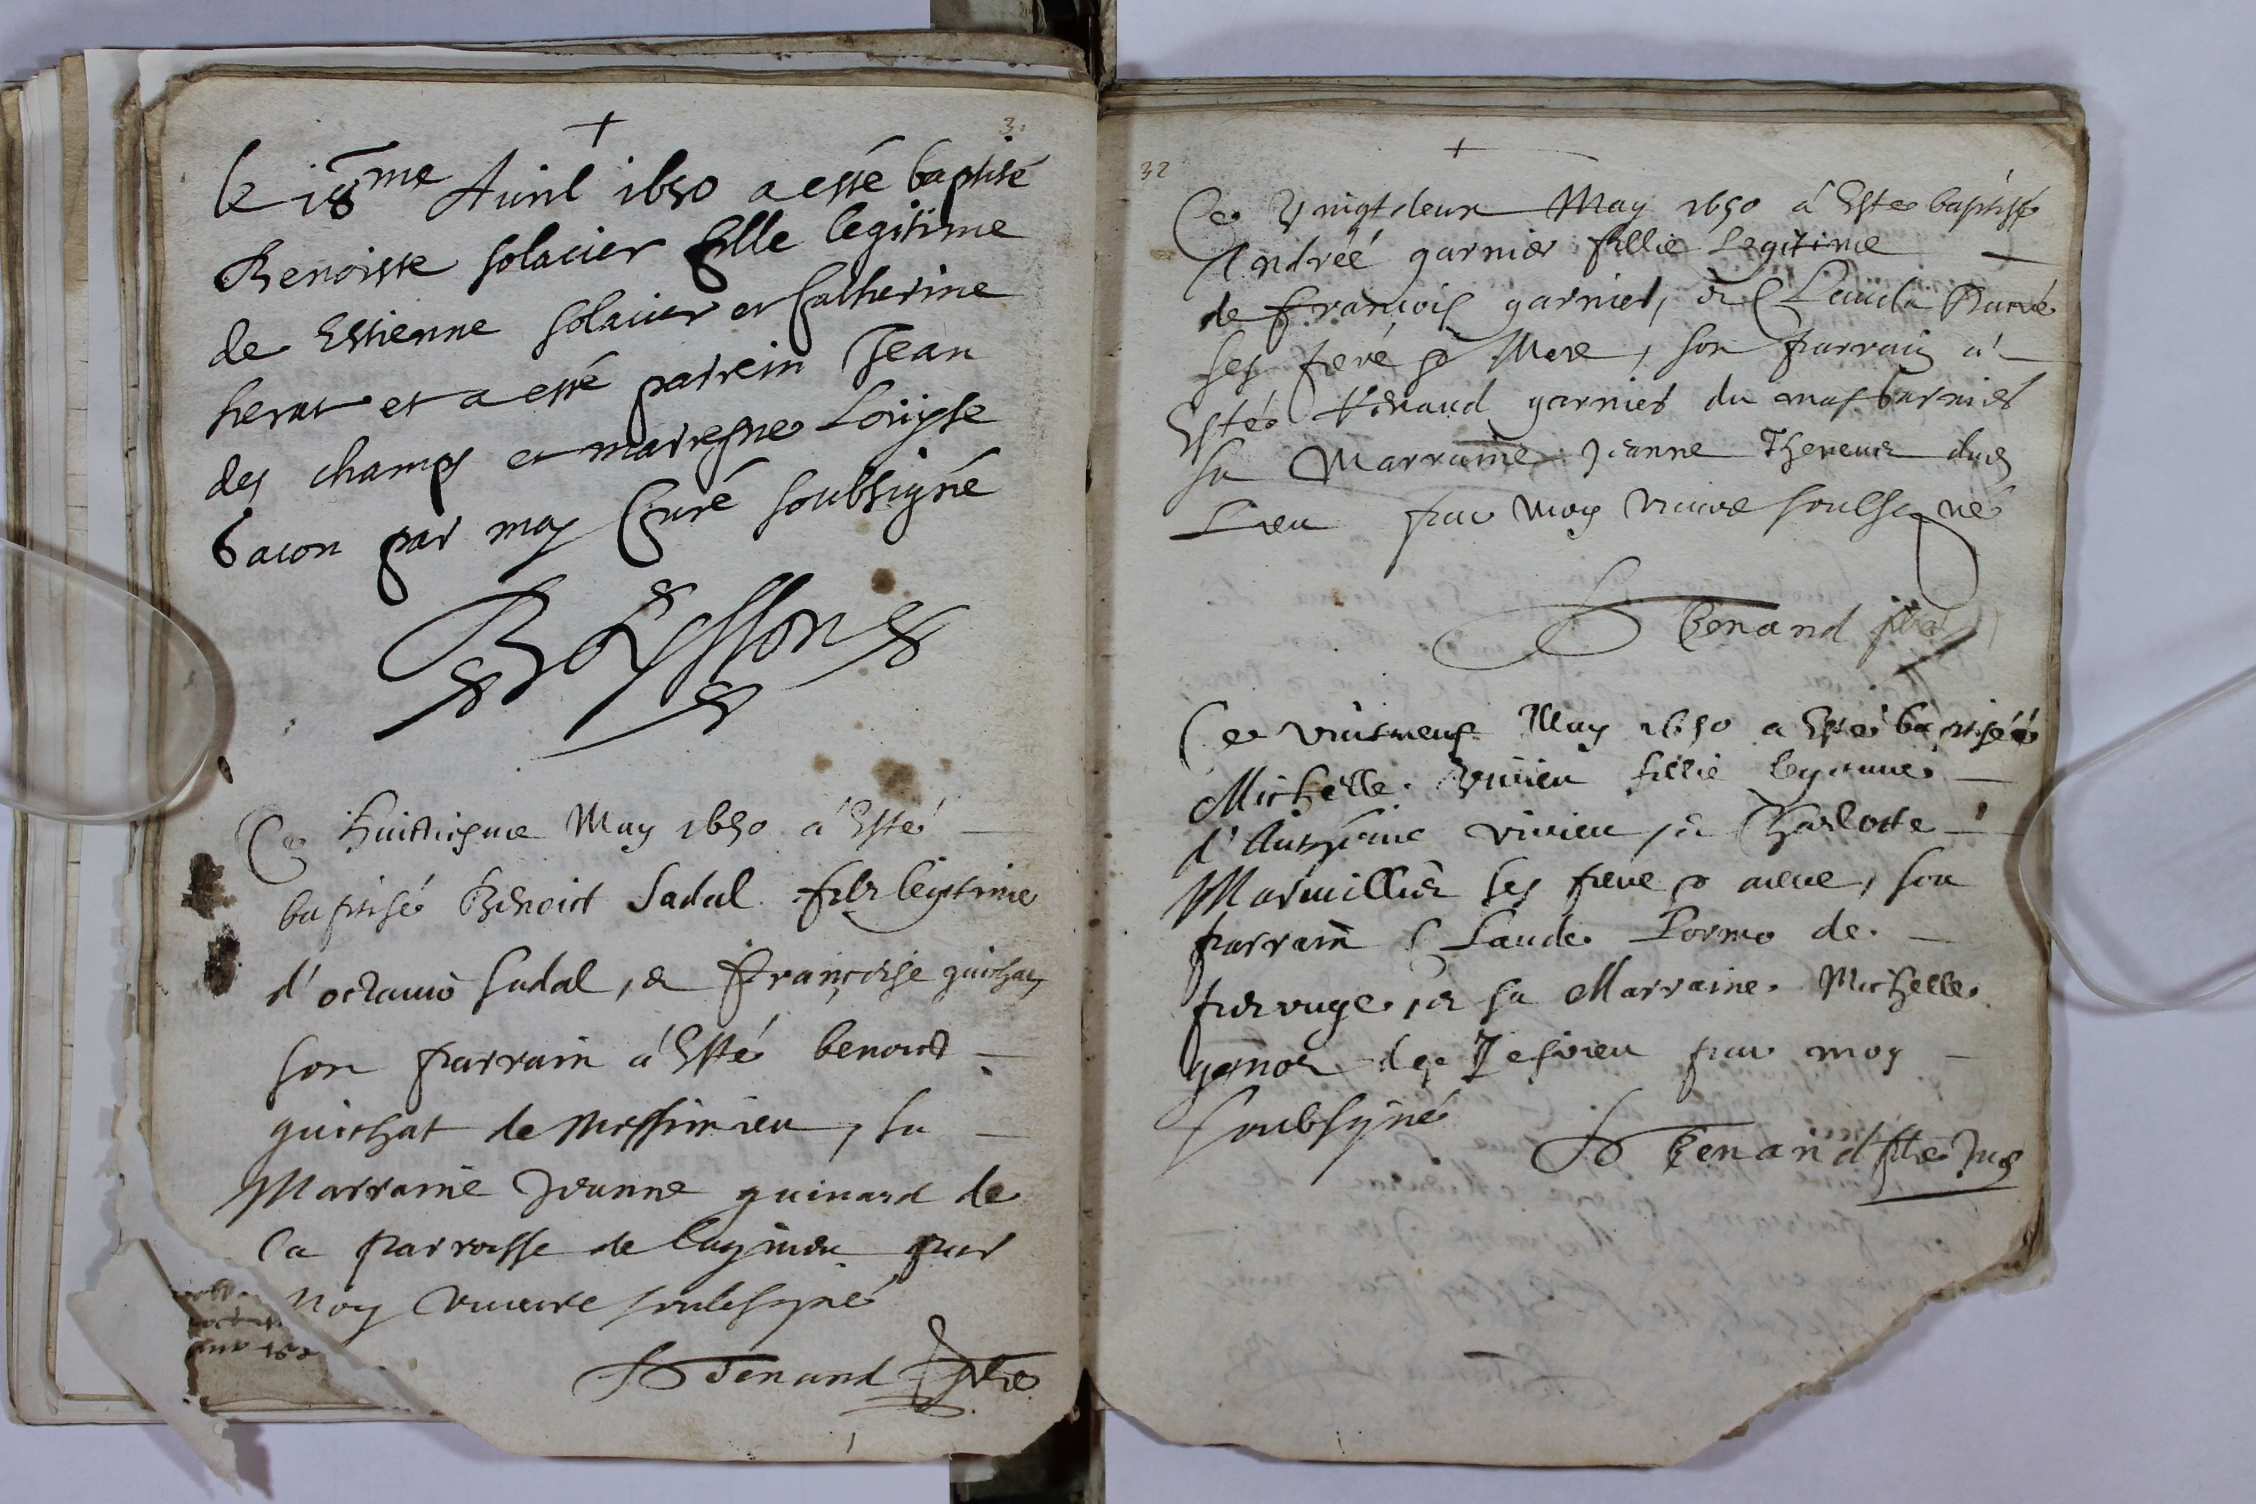 le 18me Auril 1650 a esté baptisé
Benoiste solacier fille legitime
de Estienne solacier et Catherine
et a esté parrein Jean
des champs et marregne Louyse
bacon par moy Curé soubsigné
Boysson
Ce huictiesme May 1650 á Esté
baptisé Benoict sadal filz legitime
d'octauio sadal, & Françoise guichat
son parrain á Esté benoict
guichat de Messimieu, sa
Marraine Jeanne guinard de
la parroisse de par
moy vicaire soubsigné
Tenand ptre
32
Ce Vingtdeux May 1650 á Esté baptisé
Andréé garnier fillie Legitime
de François garnier, & Claude
ses peré & Mere, son parrain a'
Esté garnier du mas garnier
sa Marraine Jeanne dud
Lieu par moy vicaire soubsigné
Tenand ptre
Ce vintneuf May 1650 a Esté baptiséé
Michelle Vivien fillie legitime
d'Anthoine vivien, & Charlotte
ses pere & mere, son
parrain Claude de
peruuge, & sa Marraine Michelle
de par moy
soubsigné
Tenand ptre vic